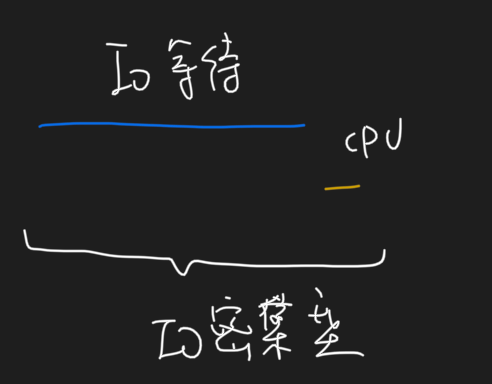 Io 等待
cpu
Io密集型